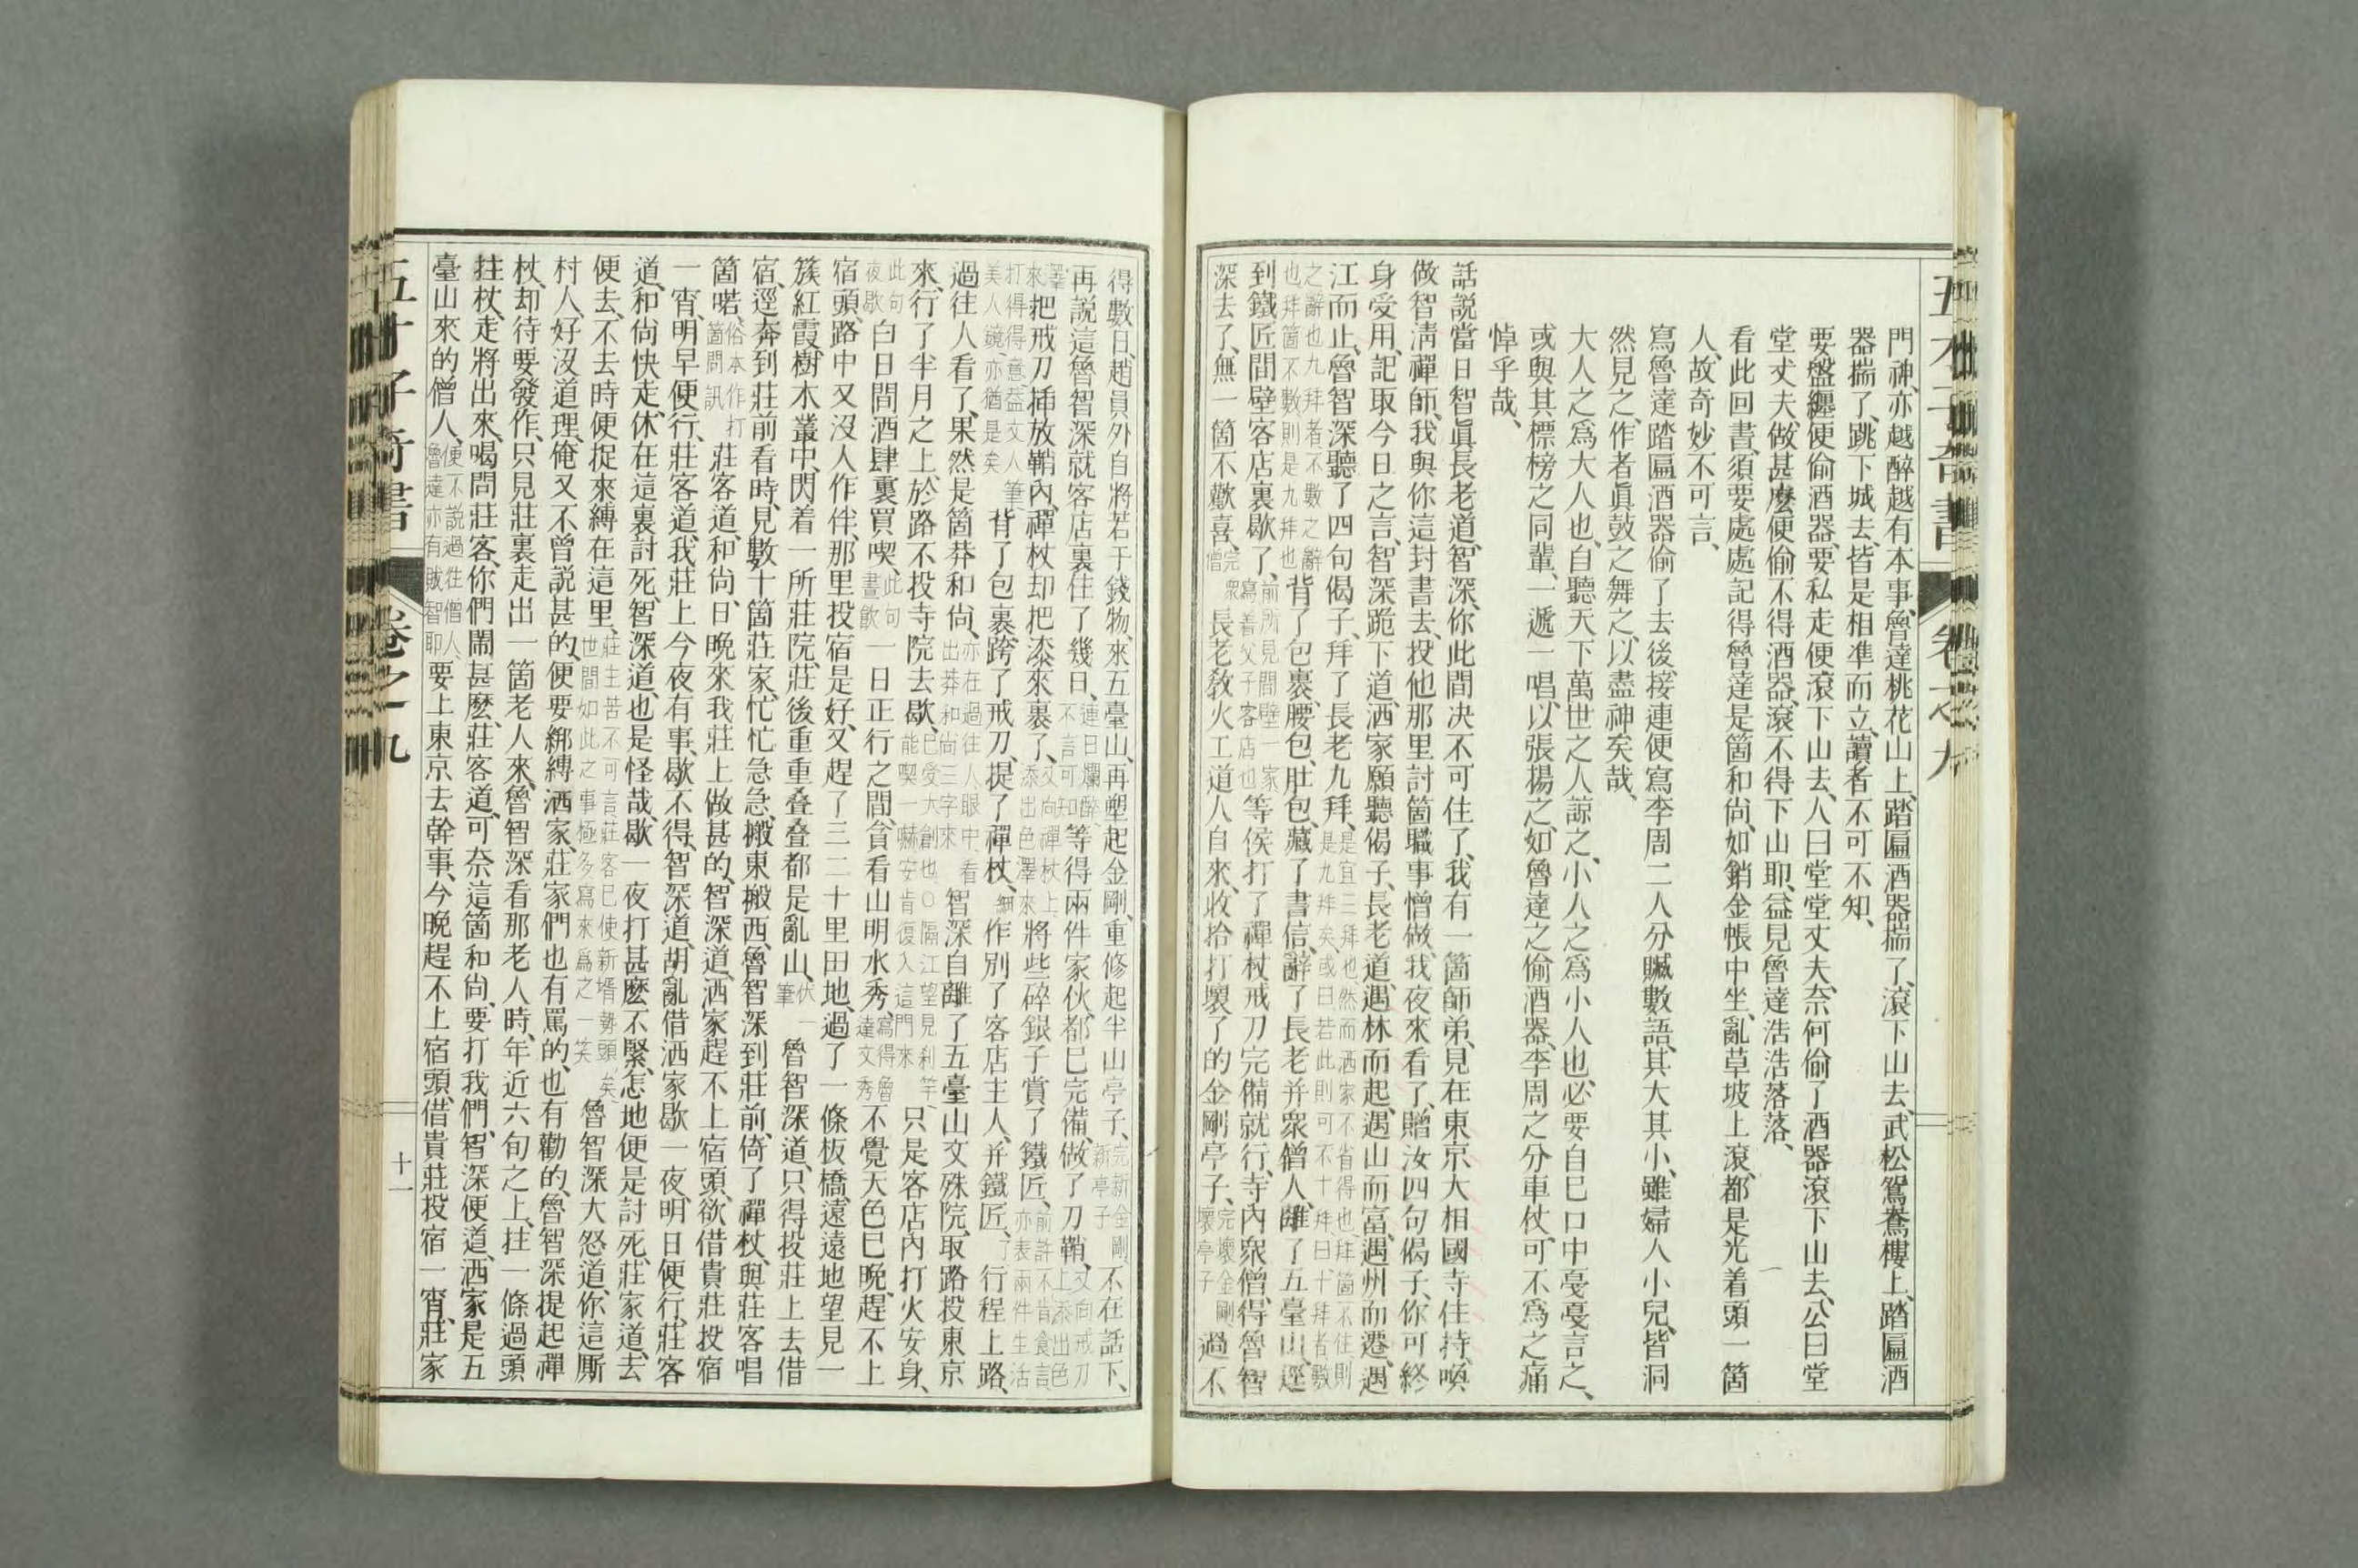 五才子奇書 卷之九
門神、亦越醉越有本事、魯達桃花山上、踏匾酒器揣了、滾下山去、武松鴛鴦樓上、踏匾酒
器揣了、跳下城去、皆是相準而立、讀者不可不知、
要盤纏便偷酒器、要私走便滾下山去、人曰堂堂丈夫、奈何偷了酒器滾下山去、公曰堂
堂丈夫、做甚麼便偷不得酒器、滾不得下山耶、益見魯達浩浩落落、
看此回書、須要處處記得魯達是箇和尙、如銷金帳中坐、亂草坡上滾、都是光着頭一箇
人、故奇妙不可言、
寫魯達踏匾酒器偷了去後、接連便寫李周二人分贓數語、其大其小、雖婦人小兒、皆洞
然見之、作者眞鼓之舞之、以盡神矣哉、
大人之爲大人也、自聽天下萬世之人諒之、小人之爲小人也、必要自己口中戞戞言之、
或與其標榜之同輩、一遞一唱、以張揚之、如魯達之偷酒器、李周之分車仗、可不爲之痛
悼乎哉、
話說當日智眞長老道、智深、你此間決不可住了、我有一箇師弟、見在東京大相國寺住持、喚
做智淸禪師、我與你這封書去、投他那里討箇職事僧做、我夜來看了、贈汝四句偈子、你可終
身受用、記取今日之言、智深跪下道、洒家願聽偈子、長老道、遇林而起、遇山而富、遇州而遷、遇
江而止、魯智深聽了四句偈子、拜了長老九拜、是宜三拜也、然而洒家不省得也、拜箇不住、則是九拜矣、或曰、若此則可不十拜、曰、十拜者數
之辭也、九拜者不數之辭也、拜箇不數、則是九拜也背了包裹、腰包、肚包、藏了書信、辭了長老并衆僧人、離了五臺山、逕
到鐵匠間壁客店裏歇了、前所見間壁一家寫着父子客店也等侯打了禪杖戒刀完備就行、寺內衆僧、得魯智
深去了、無一箇不歡喜、完衆僧長老敎火工道人自來、收拾打壞了的金剛亭子、完壞金剛壞亭子過不
得數日、趙員外自將若干錢物、來五臺山、再塑起金剛、重修起半山亭子、完新金剛新亭子不在話下、
再說這魯智深就客店裏住了幾日、連日爛醉、不言可知等得兩件家伙、都已完備、做了刀鞘、又向戒刀上添出色
澤來把戒刀插放鞘內、禪杖却把漆來裹了、又向禪杖上添出色澤來將些碎銀子賞了鐵匠、前許不肯食言亦表兩件生活
打得得意蓋文人筆美人鏡、亦猶是矣背了包裹、跨了戒刀、提了禪杖、細作別了客店主人、幷鐵匠、了行程上路、
過往人看了、果然是箇莽和尙、亦在過往人眼中、看出莽和尙三字來智深自離了五臺山文殊院、取路投東京
來、行了半月之上、於路不投寺院去歇、已受大創也〇隔江望見刹竿、能喫一嚇安肯復入這門來只是客店內打火安身、
此句夜歇白日間酒肆裏買喫、此句晝飮一日正行之間、貪看山明水秀、寫得魯達文秀不覺天色已晚、趕不上
宿頭、路中又沒人作伴、那里投宿是好、又趕了三二十里田地、過了一條板橋、遠遠地望見一
簇紅霞、樹木叢中、閃着一所莊院、莊後重重叠叠都是亂山、伏筆一魯智深道、只得投莊上去借
宿、逕奔到莊前看時、見數十箇莊家、忙忙急急、搬東搬西、魯智深到莊前、倚了禪杖、與莊客唱
箇喏、俗本作打箇問訊莊客道、和尙、日晚來我莊上做甚的、智深道、洒家趕不上宿頭、欲借貴莊投宿
一宵、明早便行、莊客道、我莊上今夜有事、歇不得、智深道、胡亂借洒家歇一夜、明日便行、莊客
道、和尙快走、休在這裏討死、智深道、也是怪哉、歇一夜打甚麼不緊、怎地便是討死、莊家道、去
便去、不去時、便捉來縛在這里、莊主苦不可言、莊客已使新壻勢頭矣、世間如此之事極多、寫來爲之一笑魯智深大怒道、你這廝
村人、好沒道理、俺又不曾說甚的、便要綁縛洒家、莊家們也有罵的、也有勸的、魯智深提起禪
杖、却待要發作、只見莊裏走出一箇老人來、魯智深看那老人時、年近六旬之上、拄一條過頭
拄杖、走將出來、喝問莊客、你們鬧甚麽、莊客道、可奈這箇和尙、要打我們、智深便道、洒家是五
臺山來的僧人、便不說過往僧人、魯達亦有賊智耶、要上東京去幹事、今晚趕不上宿頭、借貴莊投宿一宵、莊家
五才子奇書 卷之九 十一